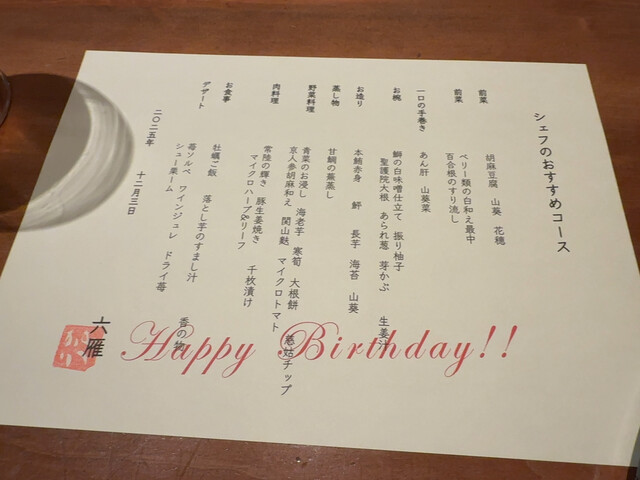 シェフのおすすめコース
前菜　胡麻豆腐　山葵　花穂
前菜　ベリー類の白和え最中
百合根のすり流し
一口の手巻き　あん肝　山葵菜
お椀　鰤の白味噌仕立て　振り柚子
聖護院大根　あられ葱　芽かぶ　生姜汁
お造り　本鮪赤身　鮃　長芋　海苔　山葵
蒸し物　甘鯛の蕪蒸し
野菜料理　青菜のお浸し　海老芋　寒筍　大根餅　慈姑チップ
京人参胡麻和え　関山麩　マイクロトマト
肉料理　常陸の輝き　豚生姜焼き　千枚漬け
マイクロハーブ&リーフ
お食事　牡蠣ご飯　落とし芋のすまし汁　香の物
デザート　苺ソルベ　ワインジュレ　ドライ苺
シュー栗ーム
二〇二五年　十二月三日
六雁
Happy Birthday!!